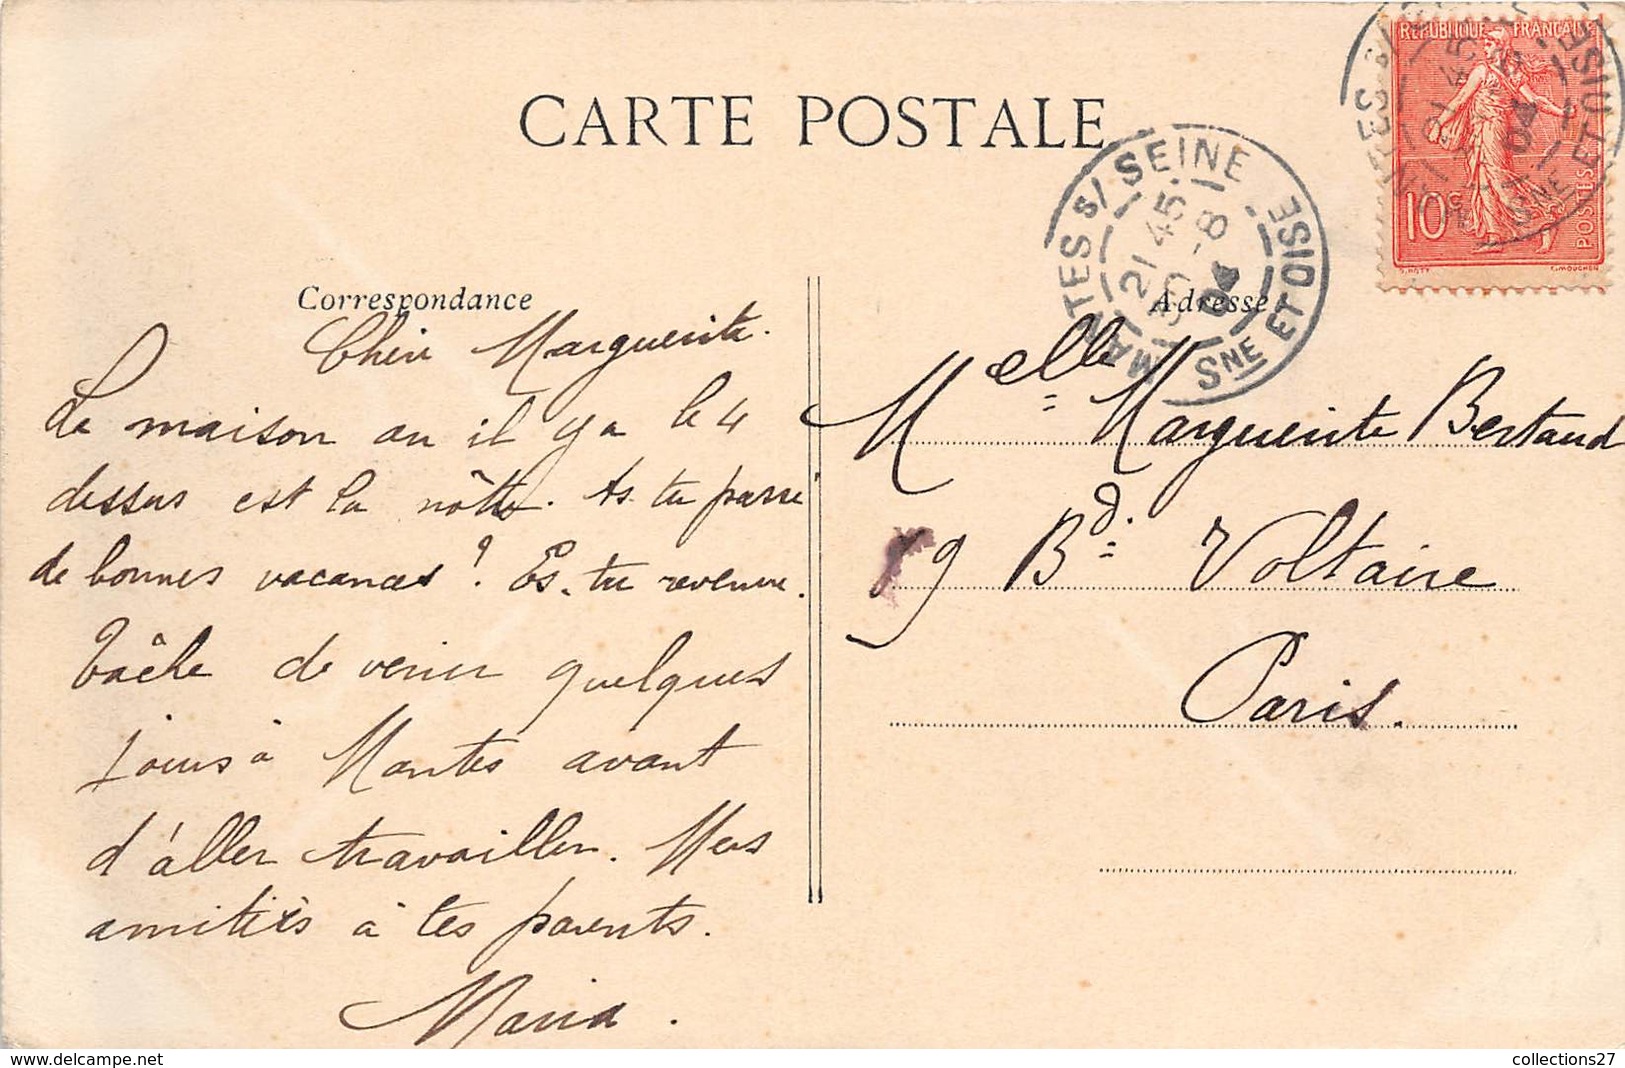 CARTE POSTALE
RÉPUBLIQUE FRANÇAISE
10c
POSTES
O. ROTY
E. MOUCHON
MANTES S/ SEINE
21 45
30 -8
04
SNE ET OISE
Correspondance
Chère Marguerite.
La maison ou il y a le 4
dessus est la nôtre. As tu passé
de bonnes vacances ? Es-tu revenue.
Tâche de venir quelques
jours à Mantes avant
d'aller travailler. Mes
amitiés à tes parents.
Maria.
Adresse
Melle Marguerite Bertaud
79 Bd. Voltaire
Paris.
collections27